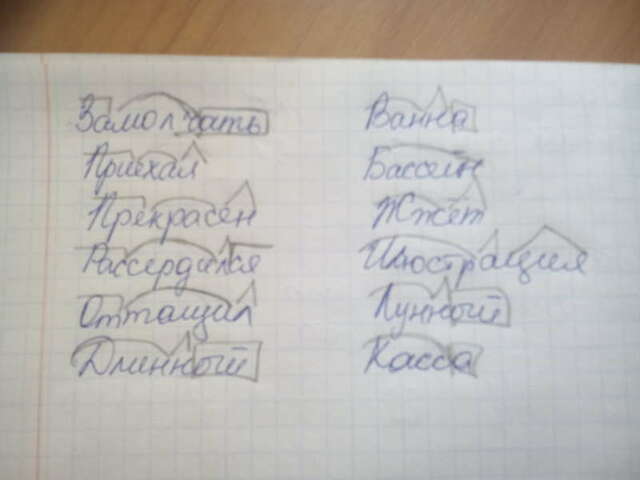 Замолчать
Приехал
Прекрасен
Рассердился
Оттащил
Длинный
Ванна
Бассейн
Жжет
Илюстрация
Лунный
Касса